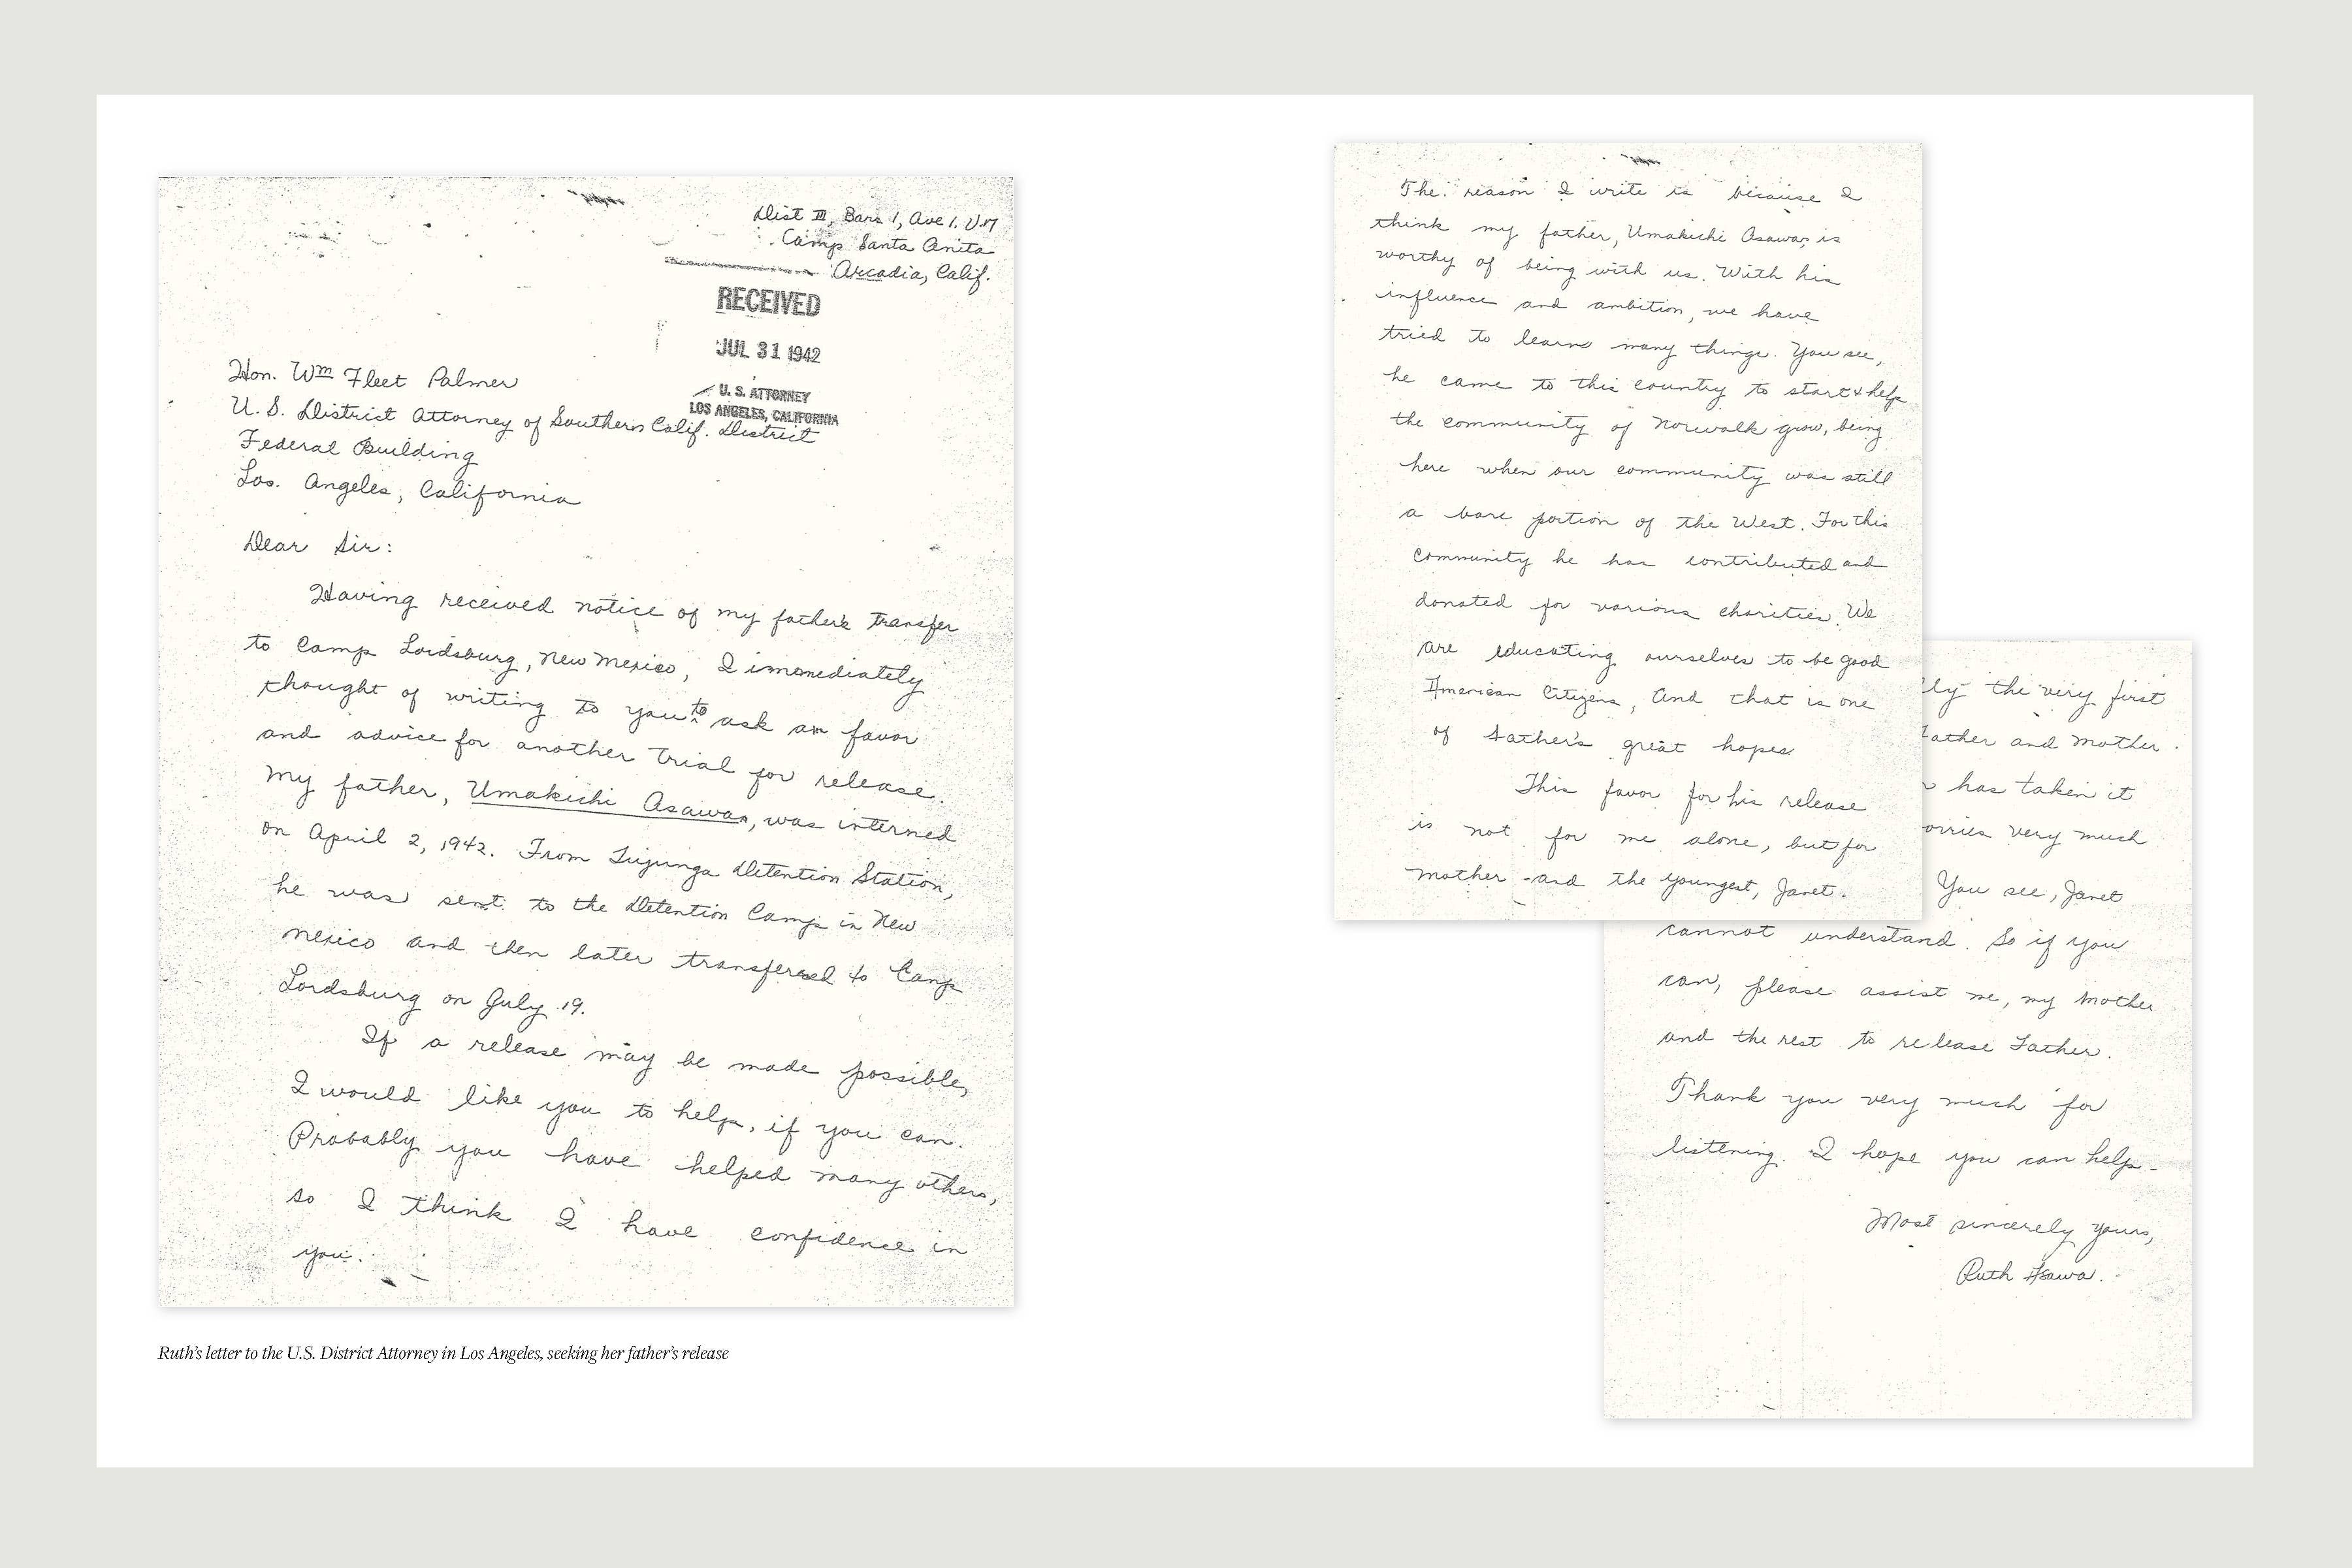 Dist III, Bars 1, Ave 1. U 17
Camp Santa Anita
Arcadia, Calif.
RECEIVED
JUL 31 1942
U. S. ATTORNEY
LOS ANGELES, CALIFORNIA
Hon. Wm Fleet Palmer
U. S. District Attorney of Southern Calif. District
Federal Building
Los. Angeles, California
Dear Sir:
Having received notice of my father's transfer
to Camp Lordsburg, New Mexico, I immediately
thought of writing to you to ask a favor
and advice for another trial for release.
My father, Umakichi Asawa, was interned
on April 2, 1942. From Tujunga Detention Station,
he was sent to the Detention Camp in New
Mexico and then later transfered to Camp
Lordsburg on July 19.
If a release may be made possible,
I would like you to help, if you can.
Probably you have helped many others,
so I think I have confidence in
you.
Ruth's letter to the U.S. District Attorney in Los Angeles, seeking her father's release
The reason I write is because I
think my father, Umakichi Asawa, is
worthy of being with us. With his
influence and ambition, we have
tried to learn many things. You see,
he came to this country to start & help
the community of Norwalk grow, being
here when our community was still
a bare portion of the West. For this
community he has contributed and
donated for various charities. We
are educating ourselves to be good
American Citizens, and that is one
of Father's great hopes.
This favor for his release
is not for me alone, but for
mother and the youngest, Janet.
lly the very first
Father and Mother.
has taken it
orries very much
You see, Janet
cannot understand. So if you
can, please assist me, my Mother
and the rest to release Father.
Thank you very much for
listening. I hope you can help.
Most sincerely yours,
Ruth Asawa.